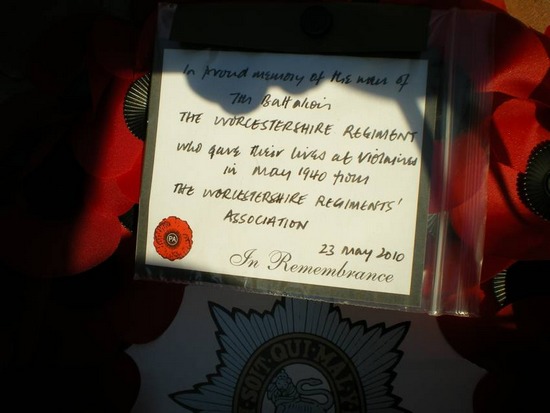 In proud memory of the men of
7th Battalion
THE WORCESTERSHIRE REGIMENT
who gave their lives at
in May 1940 from
THE WORCESTERSHIRE REGIMENTS'
ASSOCIATION
23 May 2010
PA
In Remembrance
SOIT·QUI·MAL·Y